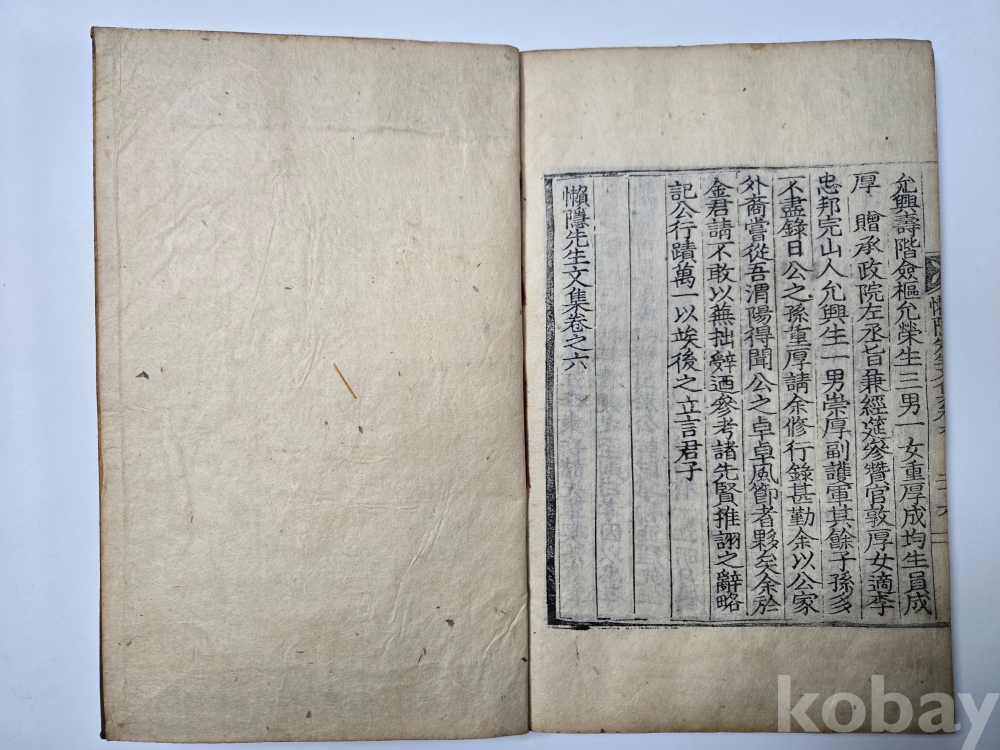 允興壽階僉樞允榮生三男一女重厚成均生員成
厚 贈承政院左丞旨兼經筵參贊官敦厚女適李
忠邦完山人允興生一男崇厚副護軍其餘子孫多
不盡錄日公之孫重厚請余修行錄甚勤余以公家
外裔嘗從吾渭陽得聞公之卓卓風節者夥矣余於
金君請不敢以蕪拙辭迺參考諸先賢推詡之辭略
記公行蹟萬一以竢後之立言君子
懶隱先生文集卷之六
kobay